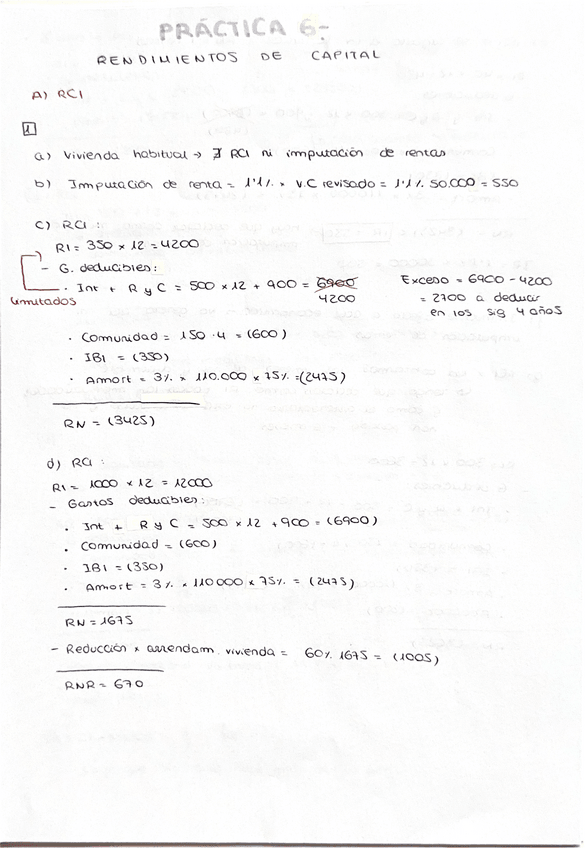 PRÁCTICA 6-
RENDIMIENTOS DE CAPITAL
A) RCI
1
a) Vivienda habitual → ∄ RCI ni imputación de rentas
b) Imputación de renta = 1'1% × V.C revisado = 1'1% 50.000 = 550
c) RCI:
RI = 350 × 12 = 4200
- G. deducibles:
· Int + R y C = 500 × 12 + 900 = 6900
4200
Limitados
Exceso = 6900 - 4200
= 2700 a deducir
en los sig 4 años
· Comunidad = 150 · 4 = (600)
· IBI = (350)
· Amort = 3% × 110.000 × 75% = (2475)
RN = (3425)
d) RCI:
RI = 1000 × 12 = 12000
- Gastos deducibles:
· Int + R y C = 500 × 12 + 900 = (6900)
· Comunidad = (600)
· IBI = (350)
· Amort = 3% × 110000 × 75% = (2475)
RN = 1675
- Reducción × arrendam. vivienda = 60% 1675 = (1005)
RNR = 670